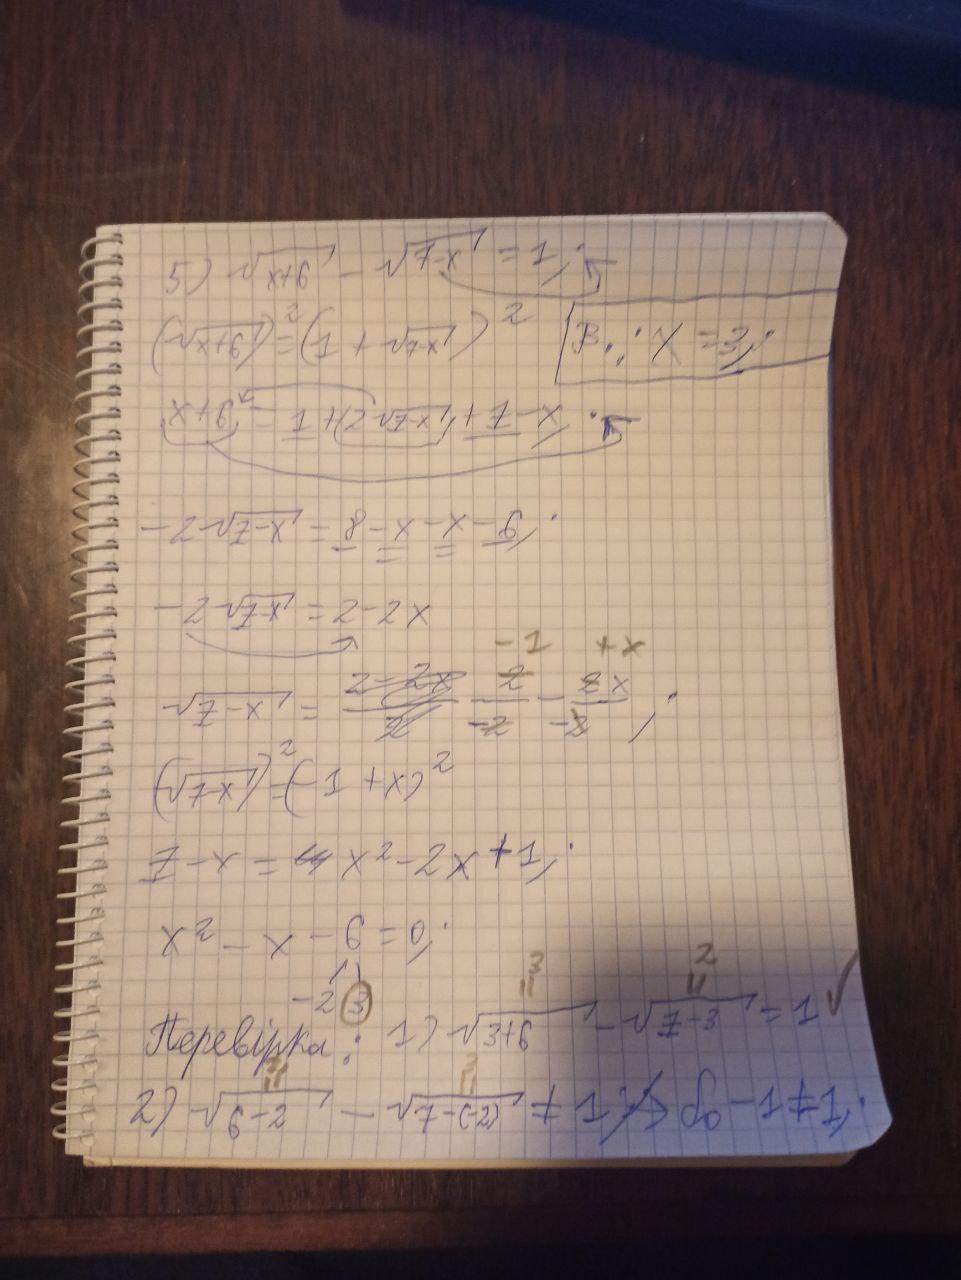 5) √(x+6) - √(7-x) = 1;
(√(x+6))² = (1 + √(7-x))²
В.: x = 3;
x+6 = 1 + 2√(7-x) + 7 - x;
-2√(7-x) = 8 - x - x - 6;
-2√(7-x) = 2 - 2x
-1 +x
√(7-x) = 2/-2 - 2x/-2;
(√(7-x))² = (-1 + x)²
7 - x = x² - 2x + 1;
x² - x - 6 = 0;
-2 3
3 2
Перевірка: 1) √(3+6) - √(7-3) = 1 ✓
2 3
2) √(6-2) - √(7-(-2)) ≠ 1, -1 ≠ 1;